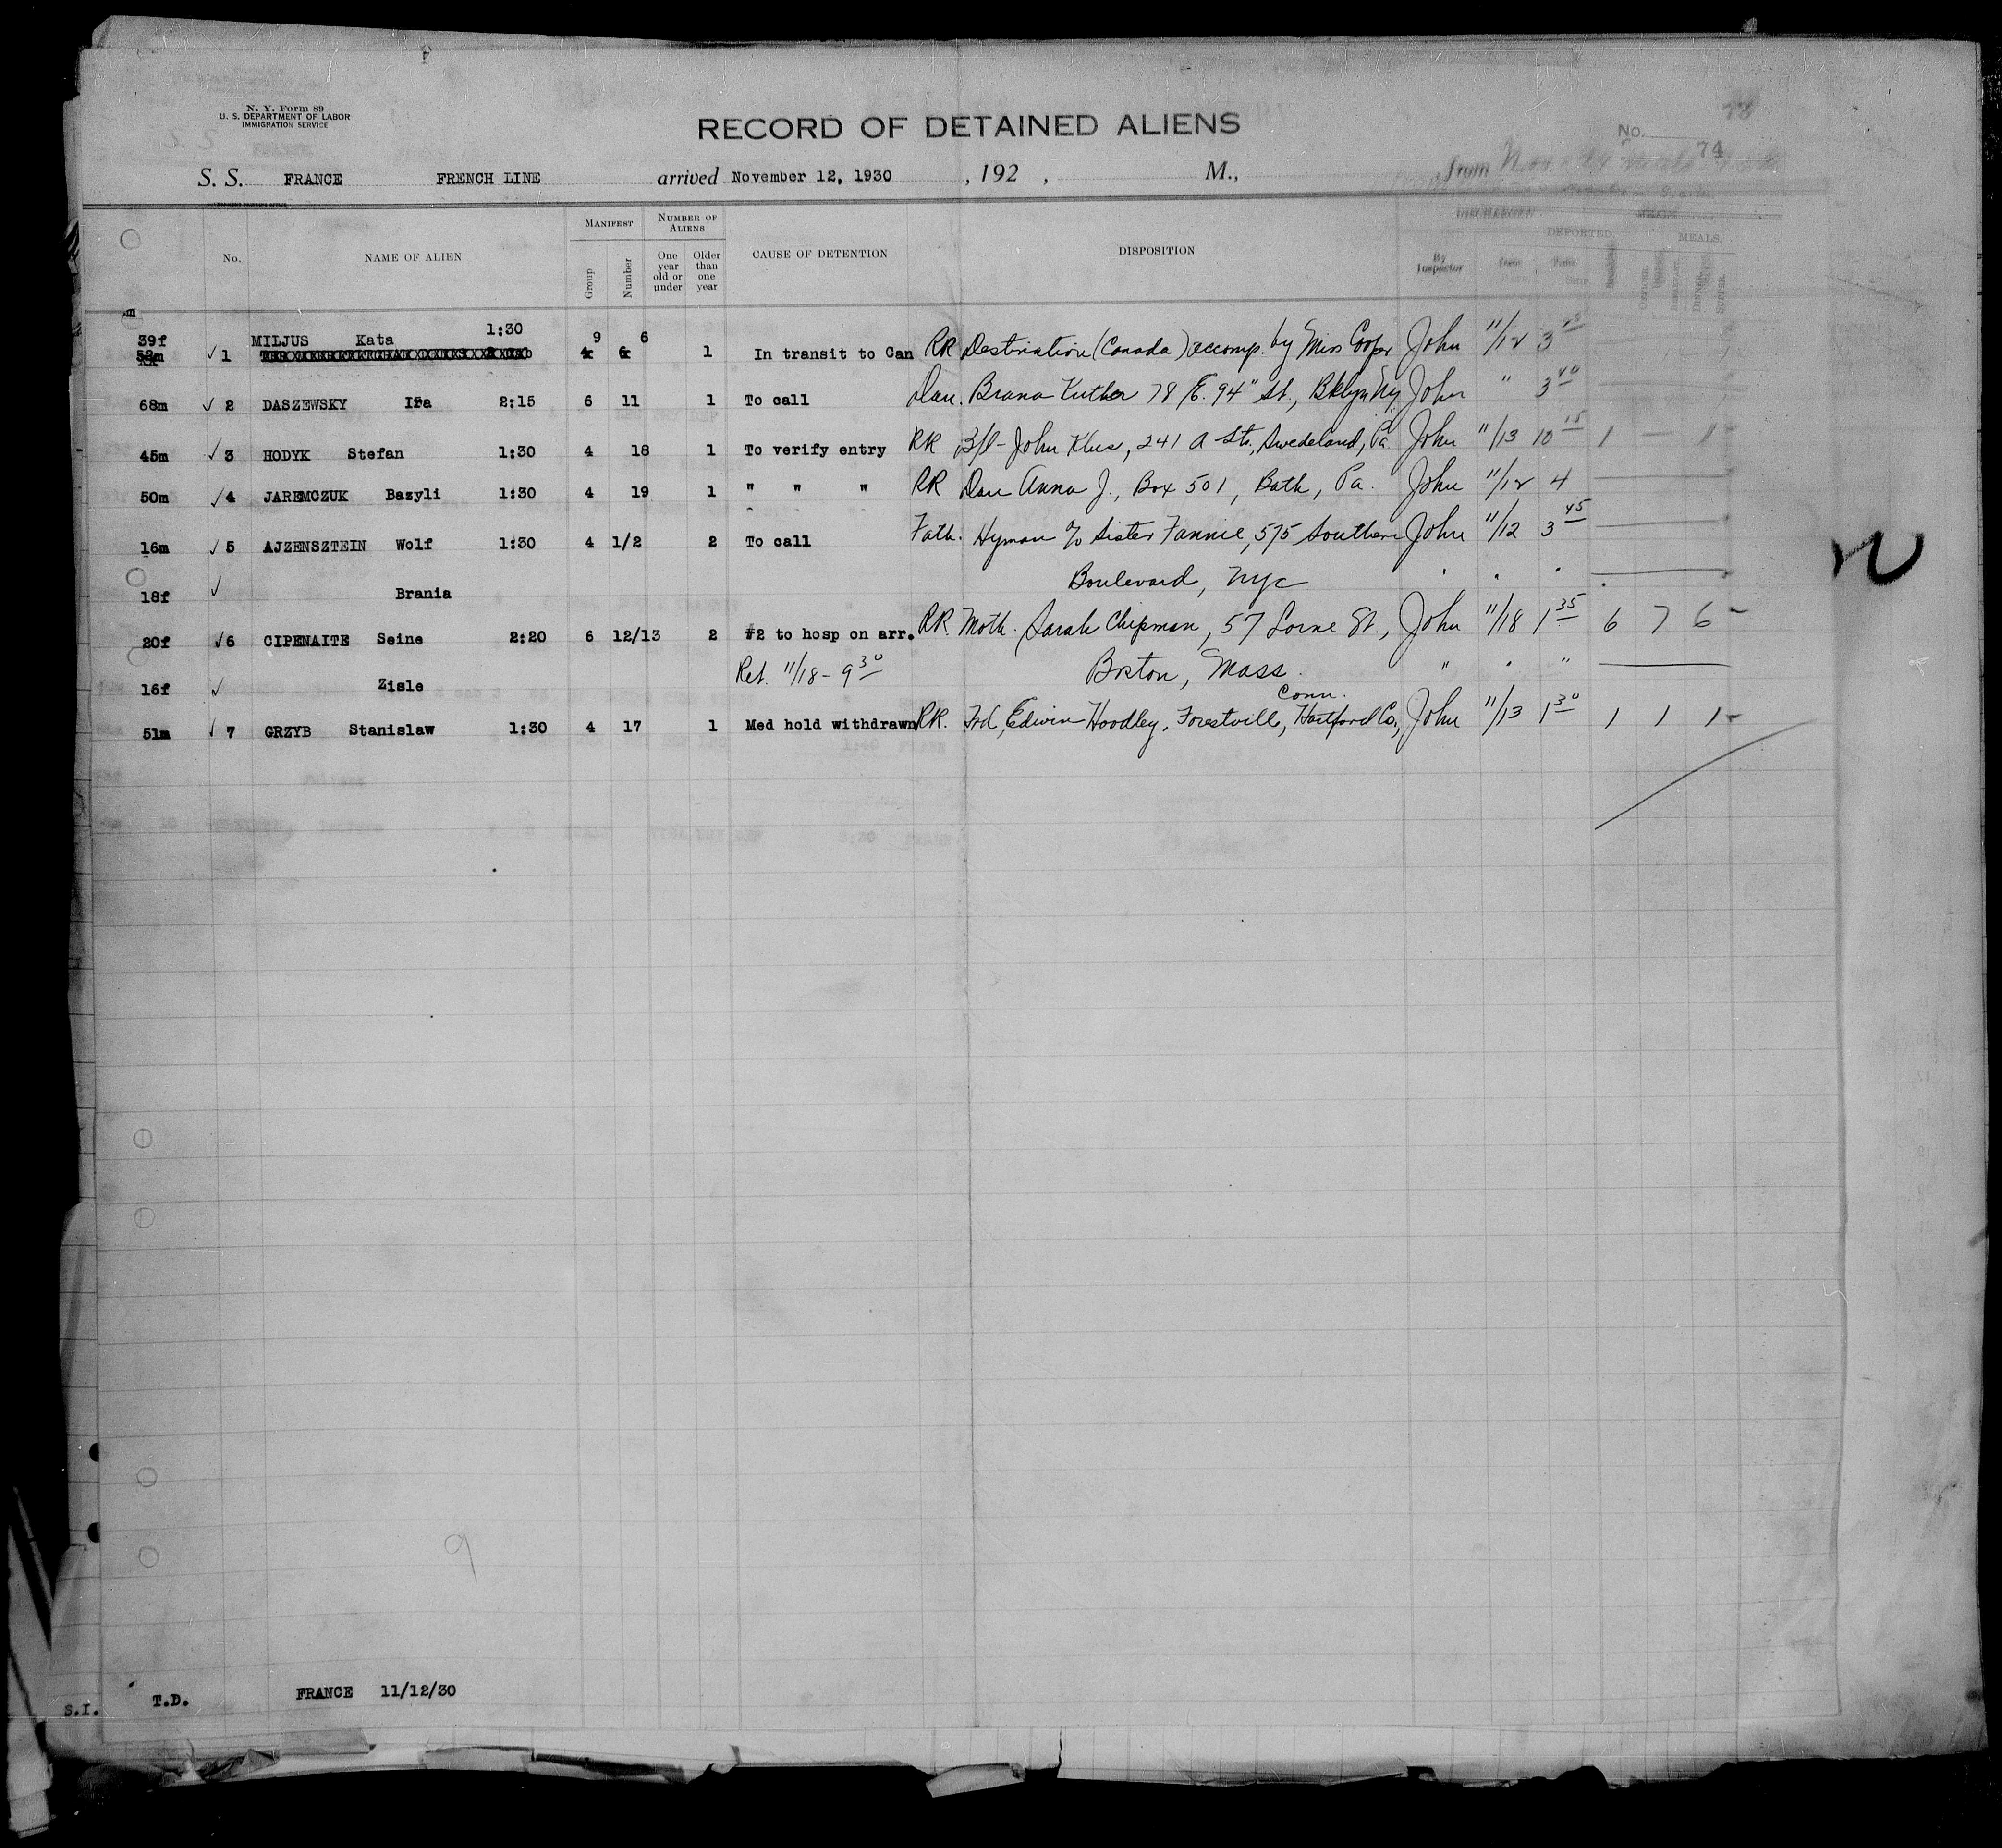 N. Y. Form 89
U. S. DEPARTMENT OF LABOR
IMMIGRATION SERVICE
RECORD OF DETAINED ALIENS
No. 74
S. S. FRANCE FRENCH LINE arrived November 12, 1930, 192 , M., from
No. NAME OF ALIEN MANIFEST Group Number NUMBER OF ALIENS One year old or under Older than one year CAUSE OF DETENTION DISPOSITION By Inspector DEPORTED. MEALS. DINNER. SUPPER.
39f MILJUS Kata 1:30 9 6
53m ✓ 1 4 6 1 In transit to Can RR Destination (Canada) accomp. by Miss Cooper John 11/12 3
68m ✓ 2 DASZEWSKY Ira 2:15 6 11 1 To call Dau. Brana Kutler 78 E. 94" St., Bklyn Ny John " 3 40
45m ✓ 3 HODYK Stefan 1:30 4 18 1 To verify entry RR B/l - John Klus, 241 A St., Swedeland, Pa. John 11/13 10 15 1 — 1
50m ✓ 4 JAREMCZUK Bazyli 1:30 4 19 1 " " " RR Dau Anna J., Box 501, Bath, Pa. John 11/12 4
16m ✓ 5 AJZENSZTEIN Wolf 1:30 4 1/2 2 To call Fath. Hyman c/o Sister Fannie, 575 Southern John 11/12 3 45
Boulevard, Nyc " " "
18f ✓ Brania
20f ✓ 6 CIPENAITE Seine 2:20 6 12/13 2 #2 to hosp on arr. RR. Moth. Sarah Chipman, 57 Lorne St., John 11/18 1 35 6 7 6
16f ✓ Zisle Ret. 11/18 - 9 30 Boston, Mass. " " "
Conn.
51m ✓ 7 GRZYB Stanislaw 1:30 4 17 1 Med hold withdrawn RR. Frd. Edwin Hoodley, Forestville, Hartford Co., John 11/13 1 30 1 1 1
9
S.I. T.D. FRANCE 11/12/30